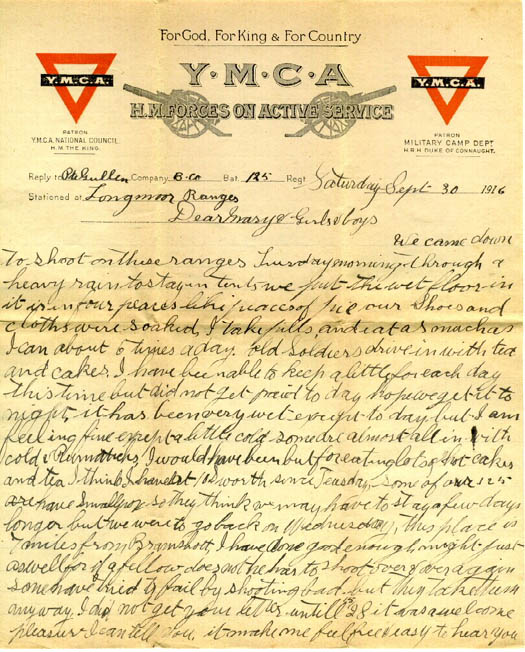 For God, For King & For Country.
Y.M.C.A.
Y.M.C.A.
Y·M·C·A
H.M. FORCES ON ACTIVE SERVICE
PATRON
Y.M.C.A. NATIONAL COUNCIL
H.M. THE KING.
PATRON
MILITARY CAMP DEPT
H.R.H DUKE OF CONNAUGHT.
Reply to Company B. CO Bat. 125 Regt. Saturday Sept 30 1916
Stationed at Longmoor Ranges
Dear Mary & Girls & boys
We came down
to shoot on these ranges Tuesday morning through a
heavy rain to stay in tents we put the wet floor in
it is in four peaces like peaces of pie our Shoes and
cloths were soaked, I take pills, and eat as much as
I can about 6 times a day. old Soldiers drive in with tea
and cakes, I have been able to keep a little for each day
this time but did not get paid to day hope we get it to
night, it has been very wet except to day but I am
feeling fine except a little cold some are almost all in with
cold & Rumatticks, I would have been but for eating lots of hot cakes
and tea I think I have eat worth since Teusday, some of our 125
are have Smallpox so they think we may have to stay a few days
longer but we were to go back on Wednesday, this place is
7 miles from Bramshott, I have done good enough, might just
as well for if a fellow does not he has to shoot over & over again
some have tried to fail by shooting bad but they take them
any way. I did not get your letter untill 28 it was a welcome
pleasure I can tell you, it make me feel free & easy to hear you